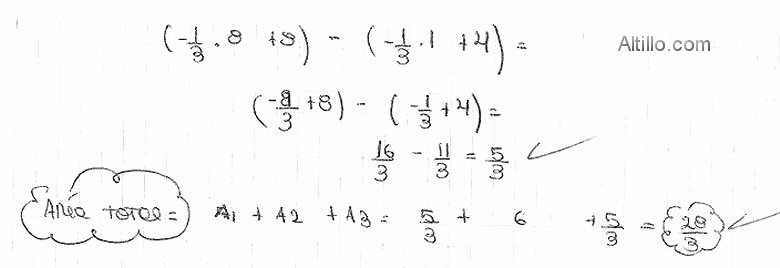 (-1/3 . 8 + 8) - (-1/3 . 1 + 4) =
Altillo.com
(-8/3 + 8) - (-1/3 + 4) =
16/3 - 11/3 = 5/3 ✓
Area total = A1 + A2 + A3 = 5/3 + 6 + 5/3 = 28/3 ✓